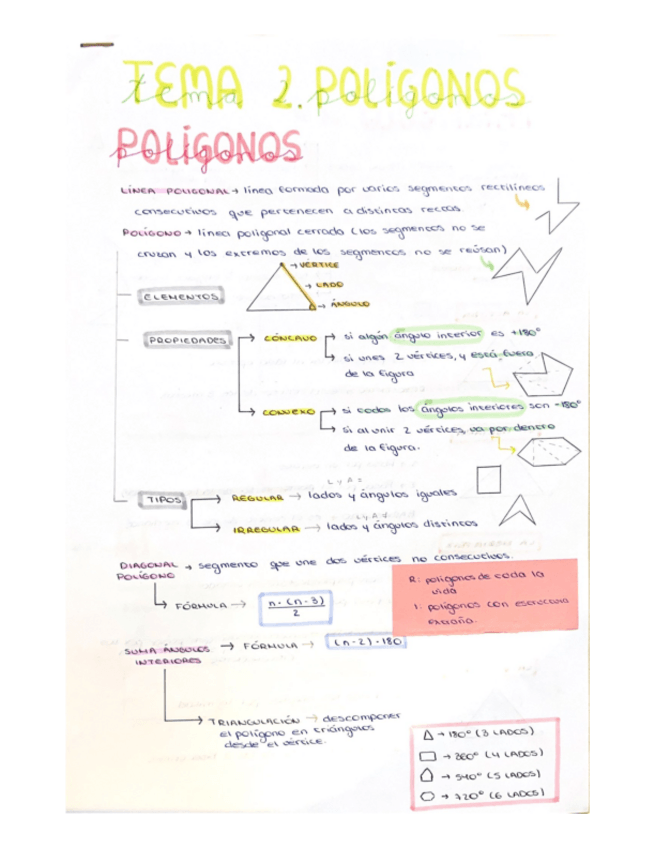 TEMA 2. POLÍGONOS
tema 2. polígonos
POLÍGONOS
polígonos
LÍNEA POLIGONAL → línea formada por varios segmentos rectilíneos
consecutivos que pertenecen a distintas rectas.
POLÍGONO → línea poligonal cerrada (los segmentos no se
cruzan y los extremos de los segmentos no se reúsan)
→ VÉRTICE
→ LADO
→ ÁNGULO
ELEMENTOS
PROPIEDADES
CÓNCAVO → si algún ángulo interior es +180°
→ si unes 2 vértices, y está fuera
de la figura
CONVEXO → si todos los ángulos interiores son -180°
→ si al unir 2 vértices, va por dentro
de la figura.
L y A =
TIPOS → REGULAR → lados y ángulos iguales
→ IRREGULAR → lados y ángulos distintos
DIAGONAL → segmento que une dos vértices no consecutivos.
POLÍGONO
R: polígonos de toda la
vida
I: polígonos con estructura
extraña.
FÓRMULA → n · (n-3)
2
SUMA ÁNGULOS → FÓRMULA → (n-2) · 180
INTERIORES
→ TRIANGULACIÓN → descomponer
el polígono en triángulos
desde el vértice.
→ 180° (3 LADOS)
→ 360° (4 LADOS)
→ 540° (5 LADOS)
→ 720° (6 LADOS)